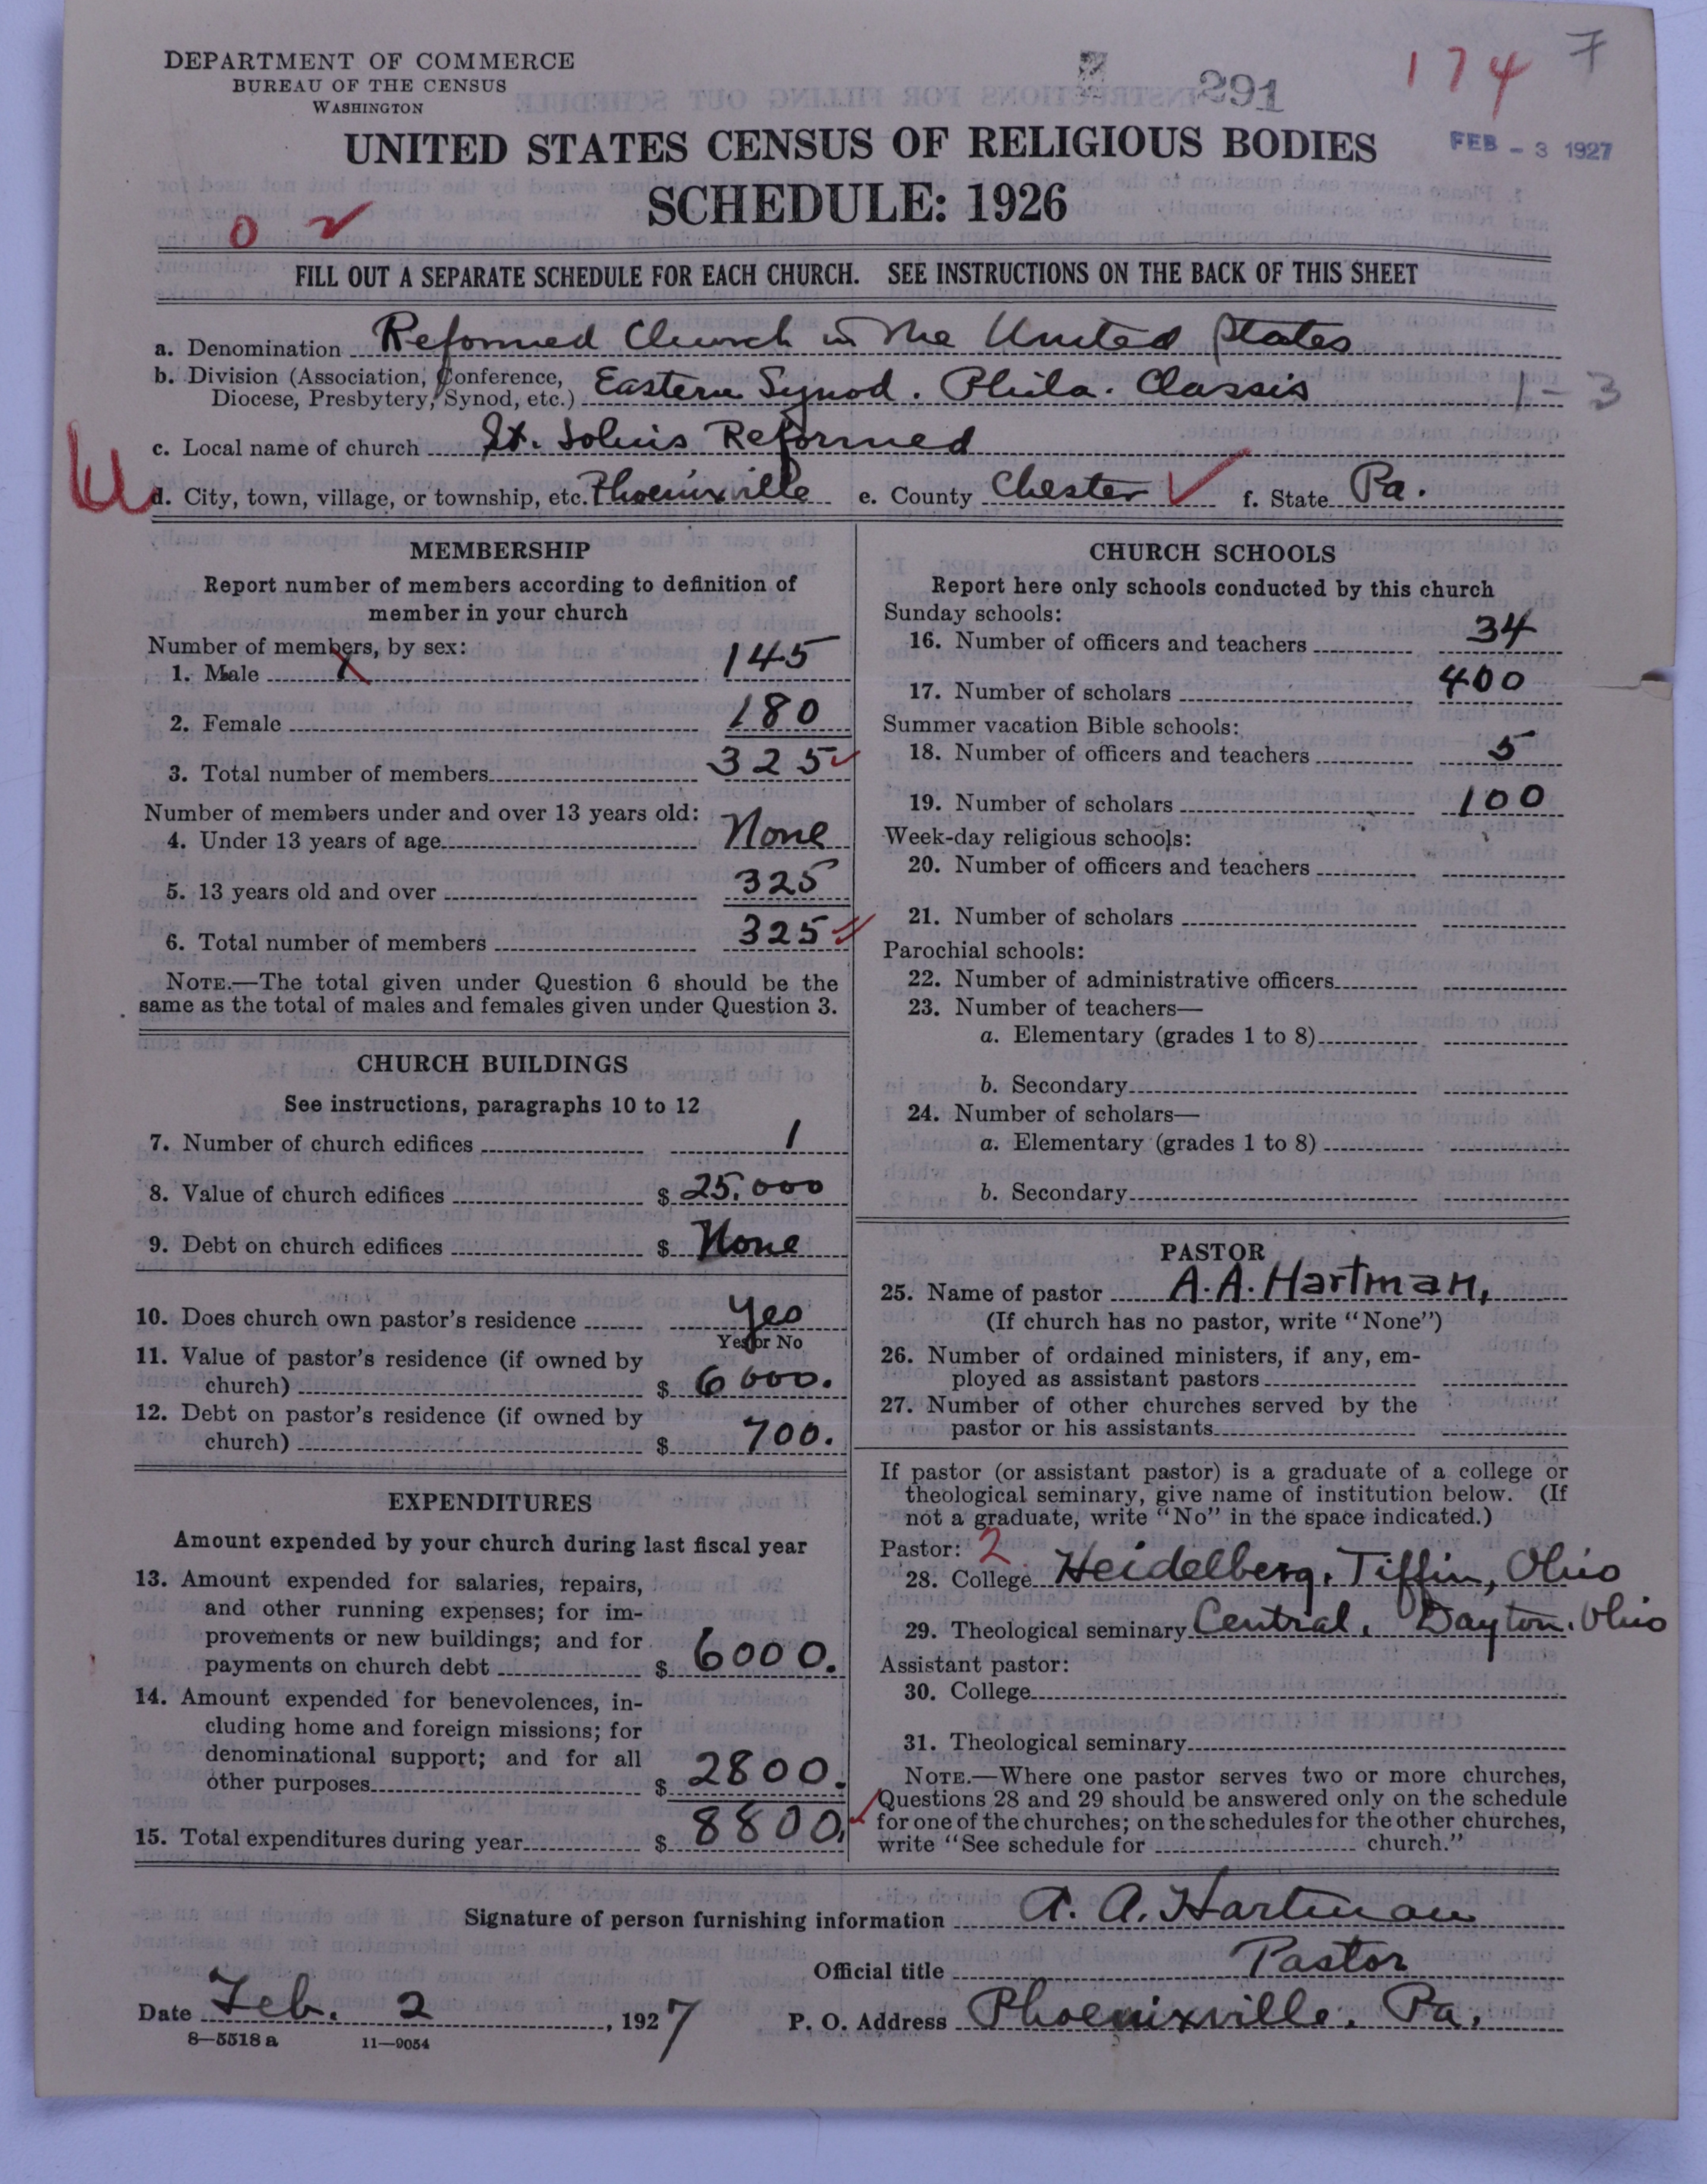 DEPARTMENT OF COMMERCE
BUREAU OF THE CENSUS
WASHINGTON
291
174
7
UNITED STATES CENSUS OF RELIGIOUS BODIES
FEB - 3 1927
SCHEDULE: 1926
0
FILL OUT A SEPARATE SCHEDULE FOR EACH CHURCH. SEE INSTRUCTIONS ON THE BACK OF THIS SHEET
a. Denomination Reformed Church in the United States
b. Division (Association, Conference,
Diocese, Presbytery, Synod, etc.) Eastern Synod. Phila. Classis 1-3
c. Local name of church St. Johns Reformed
d. City, town, village, or township, etc. Phoenixville e. County Chester f. State Pa.
MEMBERSHIP
Report number of members according to definition of
member in your church
Number of members, by sex:
1. Male 145
2. Female 180
3. Total number of members 325
Number of members under and over 13 years old:
4. Under 13 years of age None
5. 13 years old and over 325
6. Total number of members 325
NOTE.—The total given under Question 6 should be the
same as the total of males and females given under Question 3.
CHURCH BUILDINGS
See instructions, paragraphs 10 to 12
7. Number of church edifices 1
8. Value of church edifices $ 25.000
9. Debt on church edifices $ None
10. Does church own pastor's residence Yes
Yes or No
11. Value of pastor's residence (if owned by
church) $ 6000.
12. Debt on pastor's residence (if owned by
church) $ 700.
EXPENDITURES
Amount expended by your church during last fiscal year
13. Amount expended for salaries, repairs,
and other running expenses; for im-
provements or new buildings; and for
payments on church debt $ 6000.
14. Amount expended for benevolences, in-
cluding home and foreign missions; for
denominational support; and for all
other purposes $ 2800.
15. Total expenditures during year $ 8800.
CHURCH SCHOOLS
Report here only schools conducted by this church
Sunday schools:
16. Number of officers and teachers 34
17. Number of scholars 400
Summer vacation Bible schools:
18. Number of officers and teachers 5
19. Number of scholars 100
Week-day religious schools:
20. Number of officers and teachers
21. Number of scholars
Parochial schools:
22. Number of administrative officers
23. Number of teachers—
a. Elementary (grades 1 to 8)
b. Secondary
24. Number of scholars—
a. Elementary (grades 1 to 8)
b. Secondary
PASTOR
25. Name of pastor A. A. Hartman,
(If church has no pastor, write "None")
26. Number of ordained ministers, if any, em-
ployed as assistant pastors
27. Number of other churches served by the
pastor or his assistants
If pastor (or assistant pastor) is a graduate of a college or
theological seminary, give name of institution below. (If
not a graduate, write "No" in the space indicated.)
Pastor: 2
28. College Heidelberg, Tiffin, Ohio
29. Theological seminary Central, Dayton. Ohio
Assistant pastor:
30. College
31. Theological seminary
NOTE.—Where one pastor serves two or more churches,
Questions 28 and 29 should be answered only on the schedule
for one of the churches; on the schedules for the other churches,
write "See schedule for church."
Signature of person furnishing information A. A. Hartman
Official title Pastor
Date Feb. 2, 1927 P. O. Address Phoenixville, Pa.
8—5518 a 11—9054